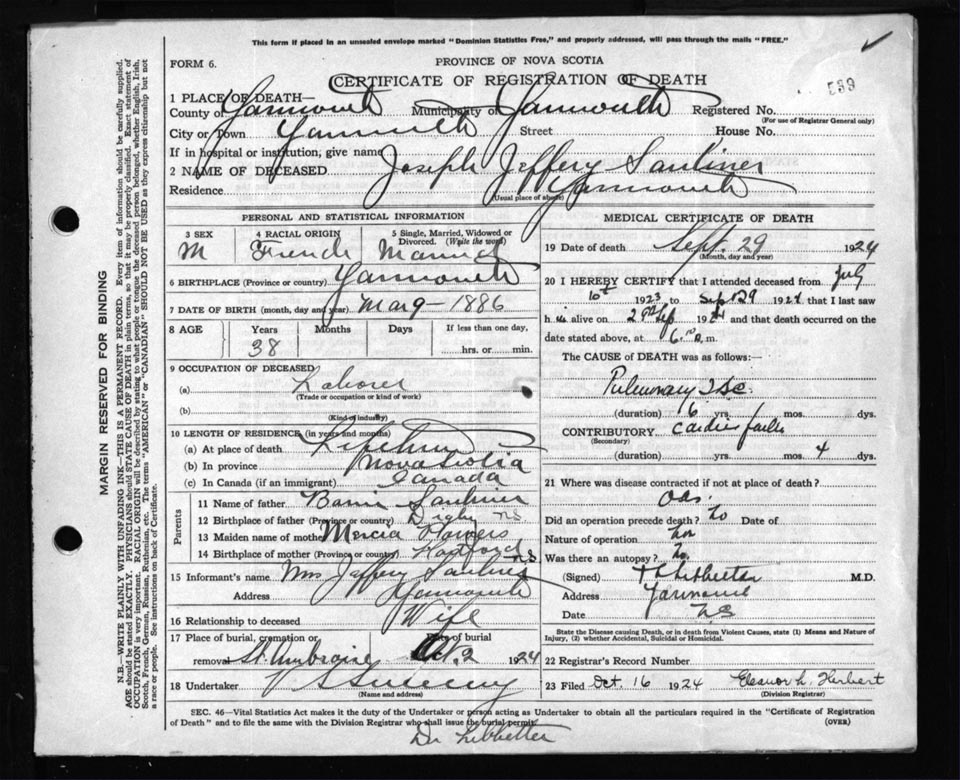 This form if placed in an unsealed envelope marked "Dominion Statistics Free," and properly addressed, will pass through the mails "FREE."
FORM 6.
PROVINCE OF NOVA SCOTIA
CERTIFICATE OF REGISTRATION OF DEATH
599
1 PLACE OF DEATH—
County of Yarmouth Municipality of Yarmouth Registered No.
(For use of Registrar General only)
City or Town Yarmouth Street House No.
If in hospital or institution, give name
2 NAME OF DECEASED Joseph Jeffery Sauliner
Residence Yarmouth
(Usual place of abode)
PERSONAL AND STATISTICAL INFORMATION
3 SEX 4 RACIAL ORIGIN 5 Single, Married, Widowed or Divorced. (Write the word)
M French Married
6 BIRTHPLACE (Province or country) Yarmouth
7 DATE OF BIRTH (month, day and year) Mar 9 - 1886
8 AGE Years Months Days If less than one day,
38 hrs. or min.
9 OCCUPATION OF DECEASED
(a) Laborer
(Trade or occupation or kind of work)
(b)
(Kind of industry)
10 LENGTH OF RESIDENCE (in years and months)
(a) At place of death Lifetime
(b) In province Nova Scotia
(c) In Canada (if an immigrant) Canada
Parents
11 Name of father Saulnier
12 Birthplace of father (Province or country) Digby NS
13 Maiden name of mother
14 Birthplace of mother (Province or country) NS
15 Informant's name Mrs Jaffery Saulnier
Address Yarmouth
16 Relationship to deceased Wife
17 Place of burial, cremation or removal St. Ambroise Date of burial Oct. 2 1924
18 Undertaker V S Sweeny
(Name and address)
MEDICAL CERTIFICATE OF DEATH
19 Date of death Sept. 29 1924
(Month, day and year)
20 I HEREBY CERTIFY that I attended deceased from July
10th 1923 to Sep 29 1924 that I last saw
h im alive on 29th Sep 1924 and that death occurred on the
date stated above, at 6 m.
The CAUSE of DEATH was as follows:—
Pulmonary
(duration) 6 yrs. mos. dys.
CONTRIBUTORY Cardiac failure
(Secondary)
(duration) yrs. mos. 4 dys.
21 Where was disease contracted if not at place of death?
Did an operation precede death? No Date of
Nature of operation
Was there an autopsy? No.
(Signed) Lebbetter M.D.
Address Yarmouth
Date N.S
State the Disease causing Death, or in death from Violent Causes, state (1) Means and Nature of Injury, (2) whether Accidental, Suicidal or Homicidal.
22 Registrar's Record Number
23 Filed Oct. 16 1924 Eleanor L. Herbert
(Division Registrar)
SEC. 46—Vital Statistics Act makes it the duty of the Undertaker or person acting as Undertaker to obtain all the particulars required in the "Certificate of Registration
of Death" and to file the same with the Division Registrar who shall issue the burial permit. (OVER)
Dr Lebbetter
MARGIN RESERVED FOR BINDING
N.B.—WRITE PLAINLY WITH UNFADING INK—THIS IS A PERMANENT RECORD. Every item of information should be carefully supplied.
AGE should be stated EXACTLY. PHYSICIANS should STATE CAUSE OF DEATH in plain terms, so that it may be properly classified. Exact statement of
OCCUPATION is very important. RACIAL ORIGIN will be described by stating to what people or tongue the deceased person belonged, whether English, Irish,
Scotch, French, German, Russian, Ruthenian, etc. The terms "AMERICAN" or "CANADIAN" SHOULD NOT BE USED as they express citizenship but not
a race or people. See instructions on back of Certificate.